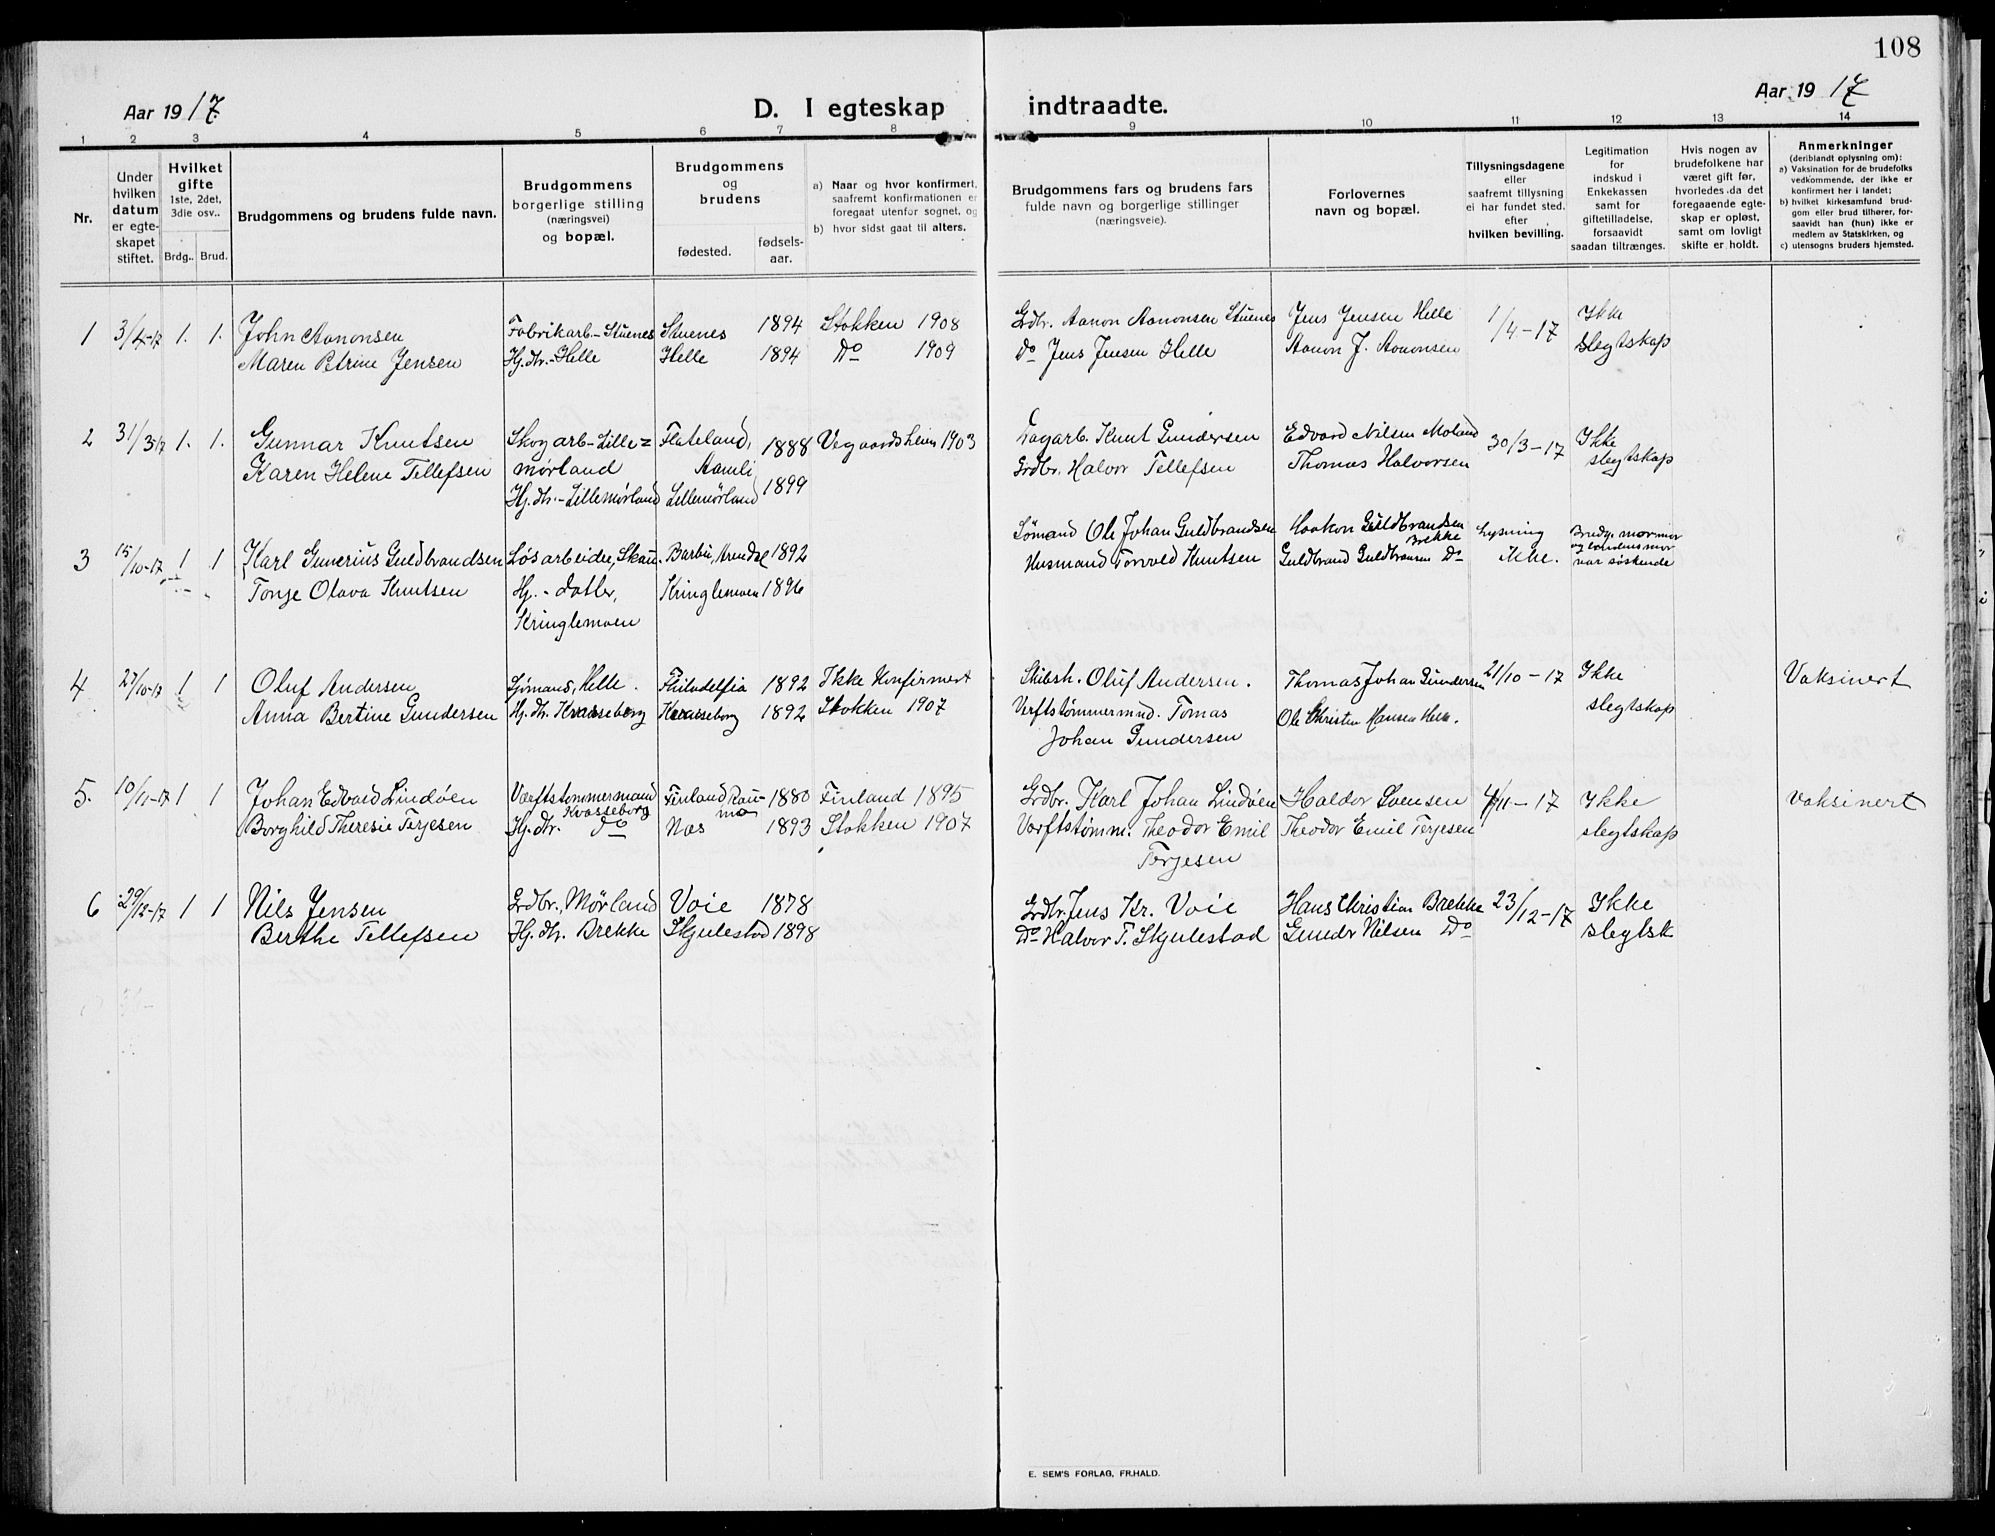 108
Aar 1917. D. I egteskap indtraadte. Aar 1917
1 2 3 4 5 6 7 8 9 10 11 12 13 14
Nr.
Under hvilken datum er egteskapet stiftet.
Hvilket gifte 1ste, 2det, 3die osv..
Brdg.. Brud.
Brudgommens og brudens fulde navn.
Brudgommens borgerlige stilling (næringsvei) og bopæl.
Brudgommens og brudens
fødested. fødselsaar.
a) Naar og hvor konfirmert, saafremt konfirmationen er foregaat utenfor sognet, og
b) hvor sidst gaat til alters.
Brudgommens fars og brudens fars fulde navn og borgerlige stillinger (næringsveie).
Forlovernes navn og bopæl.
Tillysningsdagene eller saafremt tillysning ei har fundet sted. efter hvilken bevilling.
Legitimation for indskud i Enkekassen samt for giftetilladelse, forsaavidt saadan tiltrænges.
Hvis nogen av brudefolkene har været gift før, hvorledes da det foregaaende egteskap er opløst, samt om lovligt skifte er holdt.
Anmerkninger
(deriblandt oplysning om):
a) Vaksination for de brudefolks vedkommende, der ikke er konfirmert her i landet;
b) hvilket kirkesamfund brudgom eller brud tilhører, forsaavidt han (hun) ikke er medlem av Statskirken, og
c) utensogns bruders hjemsted.
1 3/4-17 1. 1. John Aanonsen Fabrikarb-Stuenes Stuenes 1894 Stokken 1908 Grdbr. Aanon Aanonsen Stuenes Jens Jensen Helle 1/4-17 Ikke
Maren Petrine Jensen Hj. dtr.-Helle Helle 1894 Do 1909 Do Jens Jensen Helle Aanon J. Aanonsen slegtskap
2 31/3 17 1. 1. Gunnar Knutsen Skogarb-Lille= Flateland, 1888 Vegaardsheien 1903 Dagarb. Knut Gundersen Edvard Nilsen Moland 30/3-17 Ikke
Karen Helene Tellefsen mørland Aamli Grdbr. Halvor Tellefsen Thomas Halvorsen slegtskap
Hj. dtr.-Lillemørland Lillemørland 1899
3 15/10-17 1 1 Karl Gunerius Guldbrandsen Løsarbeider, Skau. Barbu, Arendal 1892 Sømand Ole Johan Guldbrandsen Haakon Guldbrandsen Brekke Lysning Brudgs mormor
Tonje Olava Knutsen Hj.-datter, Kringlemoen 1896 Husmand Torvald Knutsen Guldbrand Guldbransen Do Ikke. og brudens mor
Kringlemoen var søskende
4 27/10-17 1 1 Oluf Andersen Sjömand, Helle. Philadelfia 1892 Ikke Konfirmert Skibsh. Oluf Andersen. Thomas Johan Gundersen 21/10-17 Ikke Vaksinert
Anna Bertine Gundersen Hj. dtr. Kvasseborg Kvasseborg 1892 Stokken 1907 Verftstømmermnd. Tomas Ole Christen Hansen Helle. slegtskap
Johan Gundersen
5. 10/11-17 1 1 Johan Edvard Lindöen Værftstømmermand Finland, Rau- 1880 Finland 1895 Grdbr. Karl Johan Lindöen Haldor Svensen 4/11-17 Ikke Vaksinert
Kvasseborg mo
Borghild Theresie Terjesen Hj. dtr. do Næs 1893 Stokken 1907 Værftstømm. Theodor Emil Theodor Emil Terjesen slegtskap
Terjesen
6 29/12-17 1 1 Nils Jensen Grdbr., Mørland Voie 1878 Grdbr. Jens Kr. Voie Hans Christian Brekke 23/12-17 Ikke
Berthe Tellefsen Hj. dtr. Brekke Skjulestad 1898 Do Halvor T. Skjulestad Gunder Nilsen Do slegtsk
E. SEM'S FORLAG, FR.HALD.